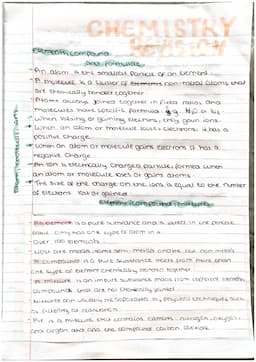 CHEMISTRY
Revision
Element, Compound
and formulae
- An atom is the smallest particle of an element
- A molecule is a cluster of non-metal atoms that
are chemically bonded together
- Atoms always joined together in fixed ratios, and
molecules have specific formula e.g. H₂O or N₂
- When losing or gaining electrons, they gain ions.
- When an atom or molecule loses electrons it has a
positive charge
- When an atom or molecule gains electrons it has a
negative charge
- An ion is electrically charged particle, formed when
an atom or molecule loses or gains atoms.
- The size of the charge on the ions is equal to the number
of electrons lost or gained
Element, compound, mixtures
- An element is a pure substance and is listed in the periodic
table. Only has one type of atom in it.
- Over 100 elements
- Most are metals, some semi-metals and are non metals
- A compound is a pure substance made from more than
one type of element chemically bonded together
- A mixture is an impure substance made from different elements,
compounds that are not chemically joined
- Mixtures can usually be separated by physical techniques such
as filtering or
- Air is a mixture and contains oxygen
and argon and also the compound carbon dioxide